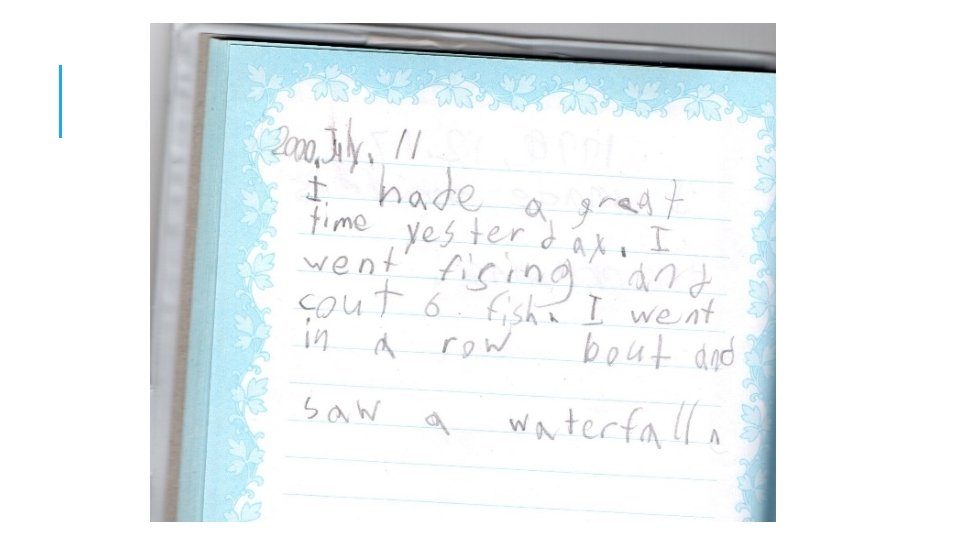 2000, July. 11
I hade a great
time yesterday. I
went fising and
cout 6 fish. I went
in a row bout and
saw a waterfall.